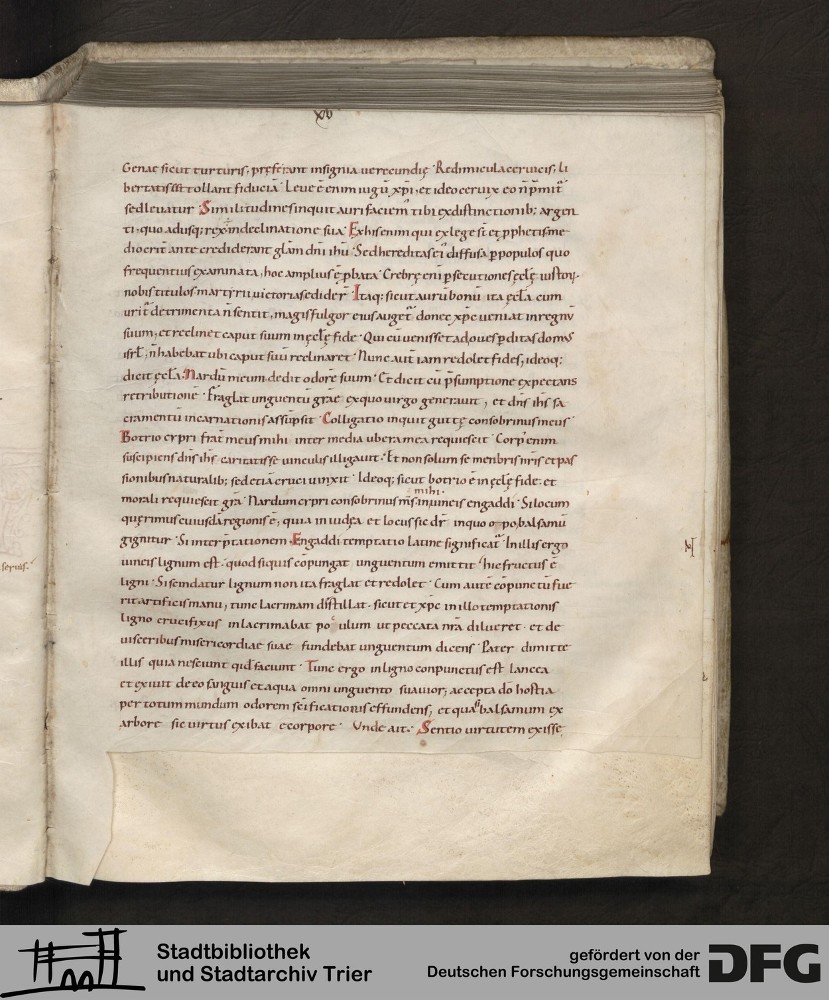 xv
Genae sicut turturis, pręferant insignia uerecundię. Redimicula ceruicis, li
bertatis ēēt tollant fiduciā. Leue ē enim iugū xp̄i, et ideo ceruix eo n̄ p̄mit͛
sed leuatur. Similitudines inquit auri faciem͛ tibi ex distinctionib; argen
ti, quo adusq; rex in declinatione sua. Ex his enim qui ex lege st̄ et p̄phetis me
dio erit ante crediderant glām dn̄i ihū. Sed hereditas ei͛ diffusa p̄ populos quo
frequentius examinata, hoc amplius ē p̄bata. Crebrę eni p̄secutiones ęcl̄ę iustorꝝ
nobis titulos martyrii uictorias edider̄. Itaq; sicut aurū bonū ita ęcl̄a cum
urit͛ detrimenta n̄ sentit, magis fulgor eius auget͛ donec xp̄c ueniat in regnū
suum, et reclinet caput suum in ęcl̄ę fide. Qui cū uenisset ad oues p̄ditas domꝰ
isrl̄, n̄ habebat ubi caput suū reclinaret. Nunc aut̄ iam redolet fides, ideoq;
dicit ęcl̄a. Nardū meum dedit odorē suum. Et dicit cū p̄sumptione expectans
retributionē. Fraglat unguentū grāe ex quo uirgo generauit, et dn̄s ih̄s sa
cramentū incarnationis assūpsit. Colligatio inquit guttę consobrinus meus
Botrio cypri frāt meus mihi inter media ubera mea requiescit. Corp͛ enim
suscipiens dn̄s ih̄s caritatis se uinculis illigauit. Et non solum se menbris nr̄is et pas
sionibus naturalib; sed etiā cruci uinxit. Ideoq; sicut botrio ē in ęcl̄ę fide, et
morali requiescit grā. Nardum cypri consobrinus ms̄ mihi in uineis engaddi. Si locum
quęrimus cuiusdā regionis ē, quia in iudęa et locus sic dr̄ in quo opobalsamū
gignitur. Si interp̄tationem. Engaddi temptatio latine significat͛. In illis ergo
uineis lignum est, quod si quis cōpungat unguentum emittit. hic fructus ē
ligni. Si scindatur lignum non ita fraglat et redolet. Cum autē cōpunctū fue
rit artificis manu, tunc lacrimam distillat. sicut et xp̄c in illo temptationis
ligno crucifixus inlacrimabat po ulum ut peccata nr̄a dilueret. et de
uisceribus misericordiae suae fundebat unguentum dicens. Pater dimitte
illis quia nesciunt qid faciunt. Tunc ergo in ligno conpunctus est lancea
et exiuit de eo sanguis et aqua omni unguento suauior, accepta dō hostia
per totum mundum odorem sc̄ificationis effundens, et quasi balsamum ex
arbore sic uirtus exibat e corpore. Vnde ait. Sentio uirtutem exisse
Stadtbibliothek
und Stadtarchiv Trier
gefördert von der
Deutschen Forschungsgemeinschaft
DFG